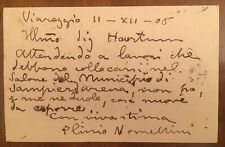 Viareggio 11-XII-05
Illmo Sig Hautmann
Attendendo a lavori che
debbono collocarsi nel
Salone del Municipio di
Sampierdarena, non ho,
e me ne duole, cose nuove
da esporre.
Con viva stima
Plinio Nomellini